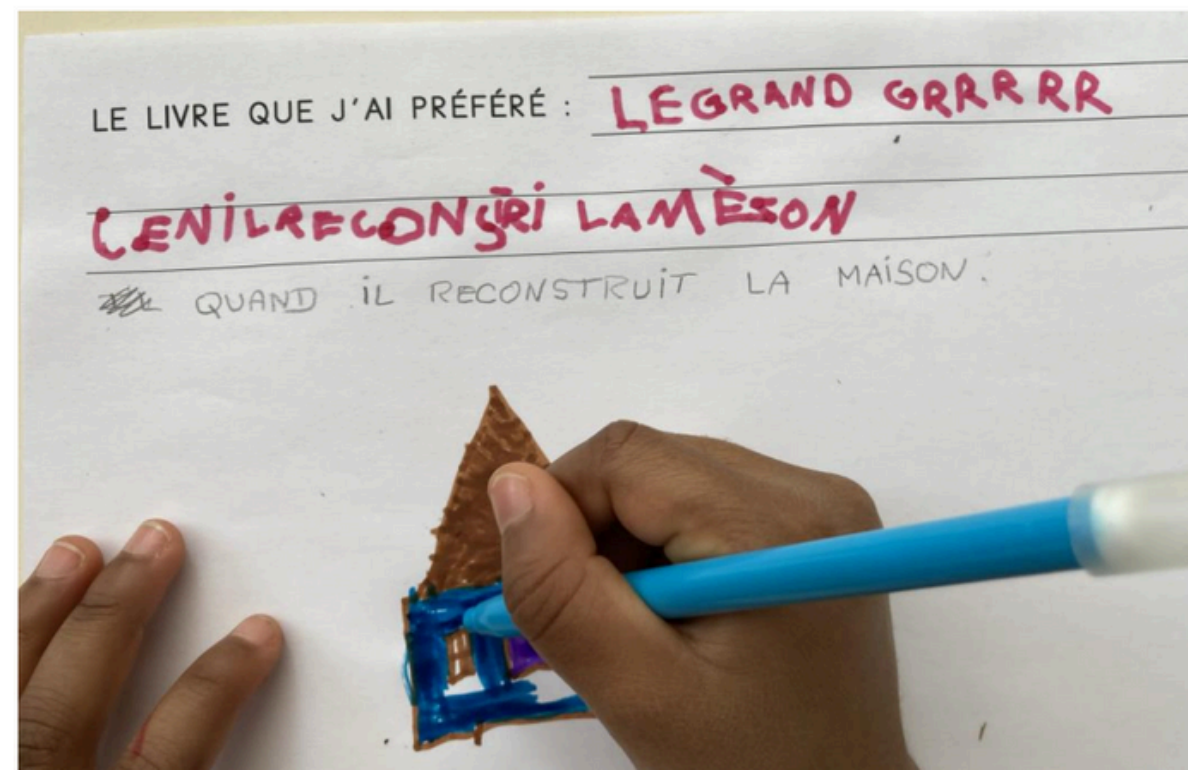 LE LIVRE QUE J'AI PRÉFÉRÉ : LEGRAND GRRRRR
CENILRECONSTRI LAMÈSON
QUAND iL RECONSTRUiT LA MAiSON.